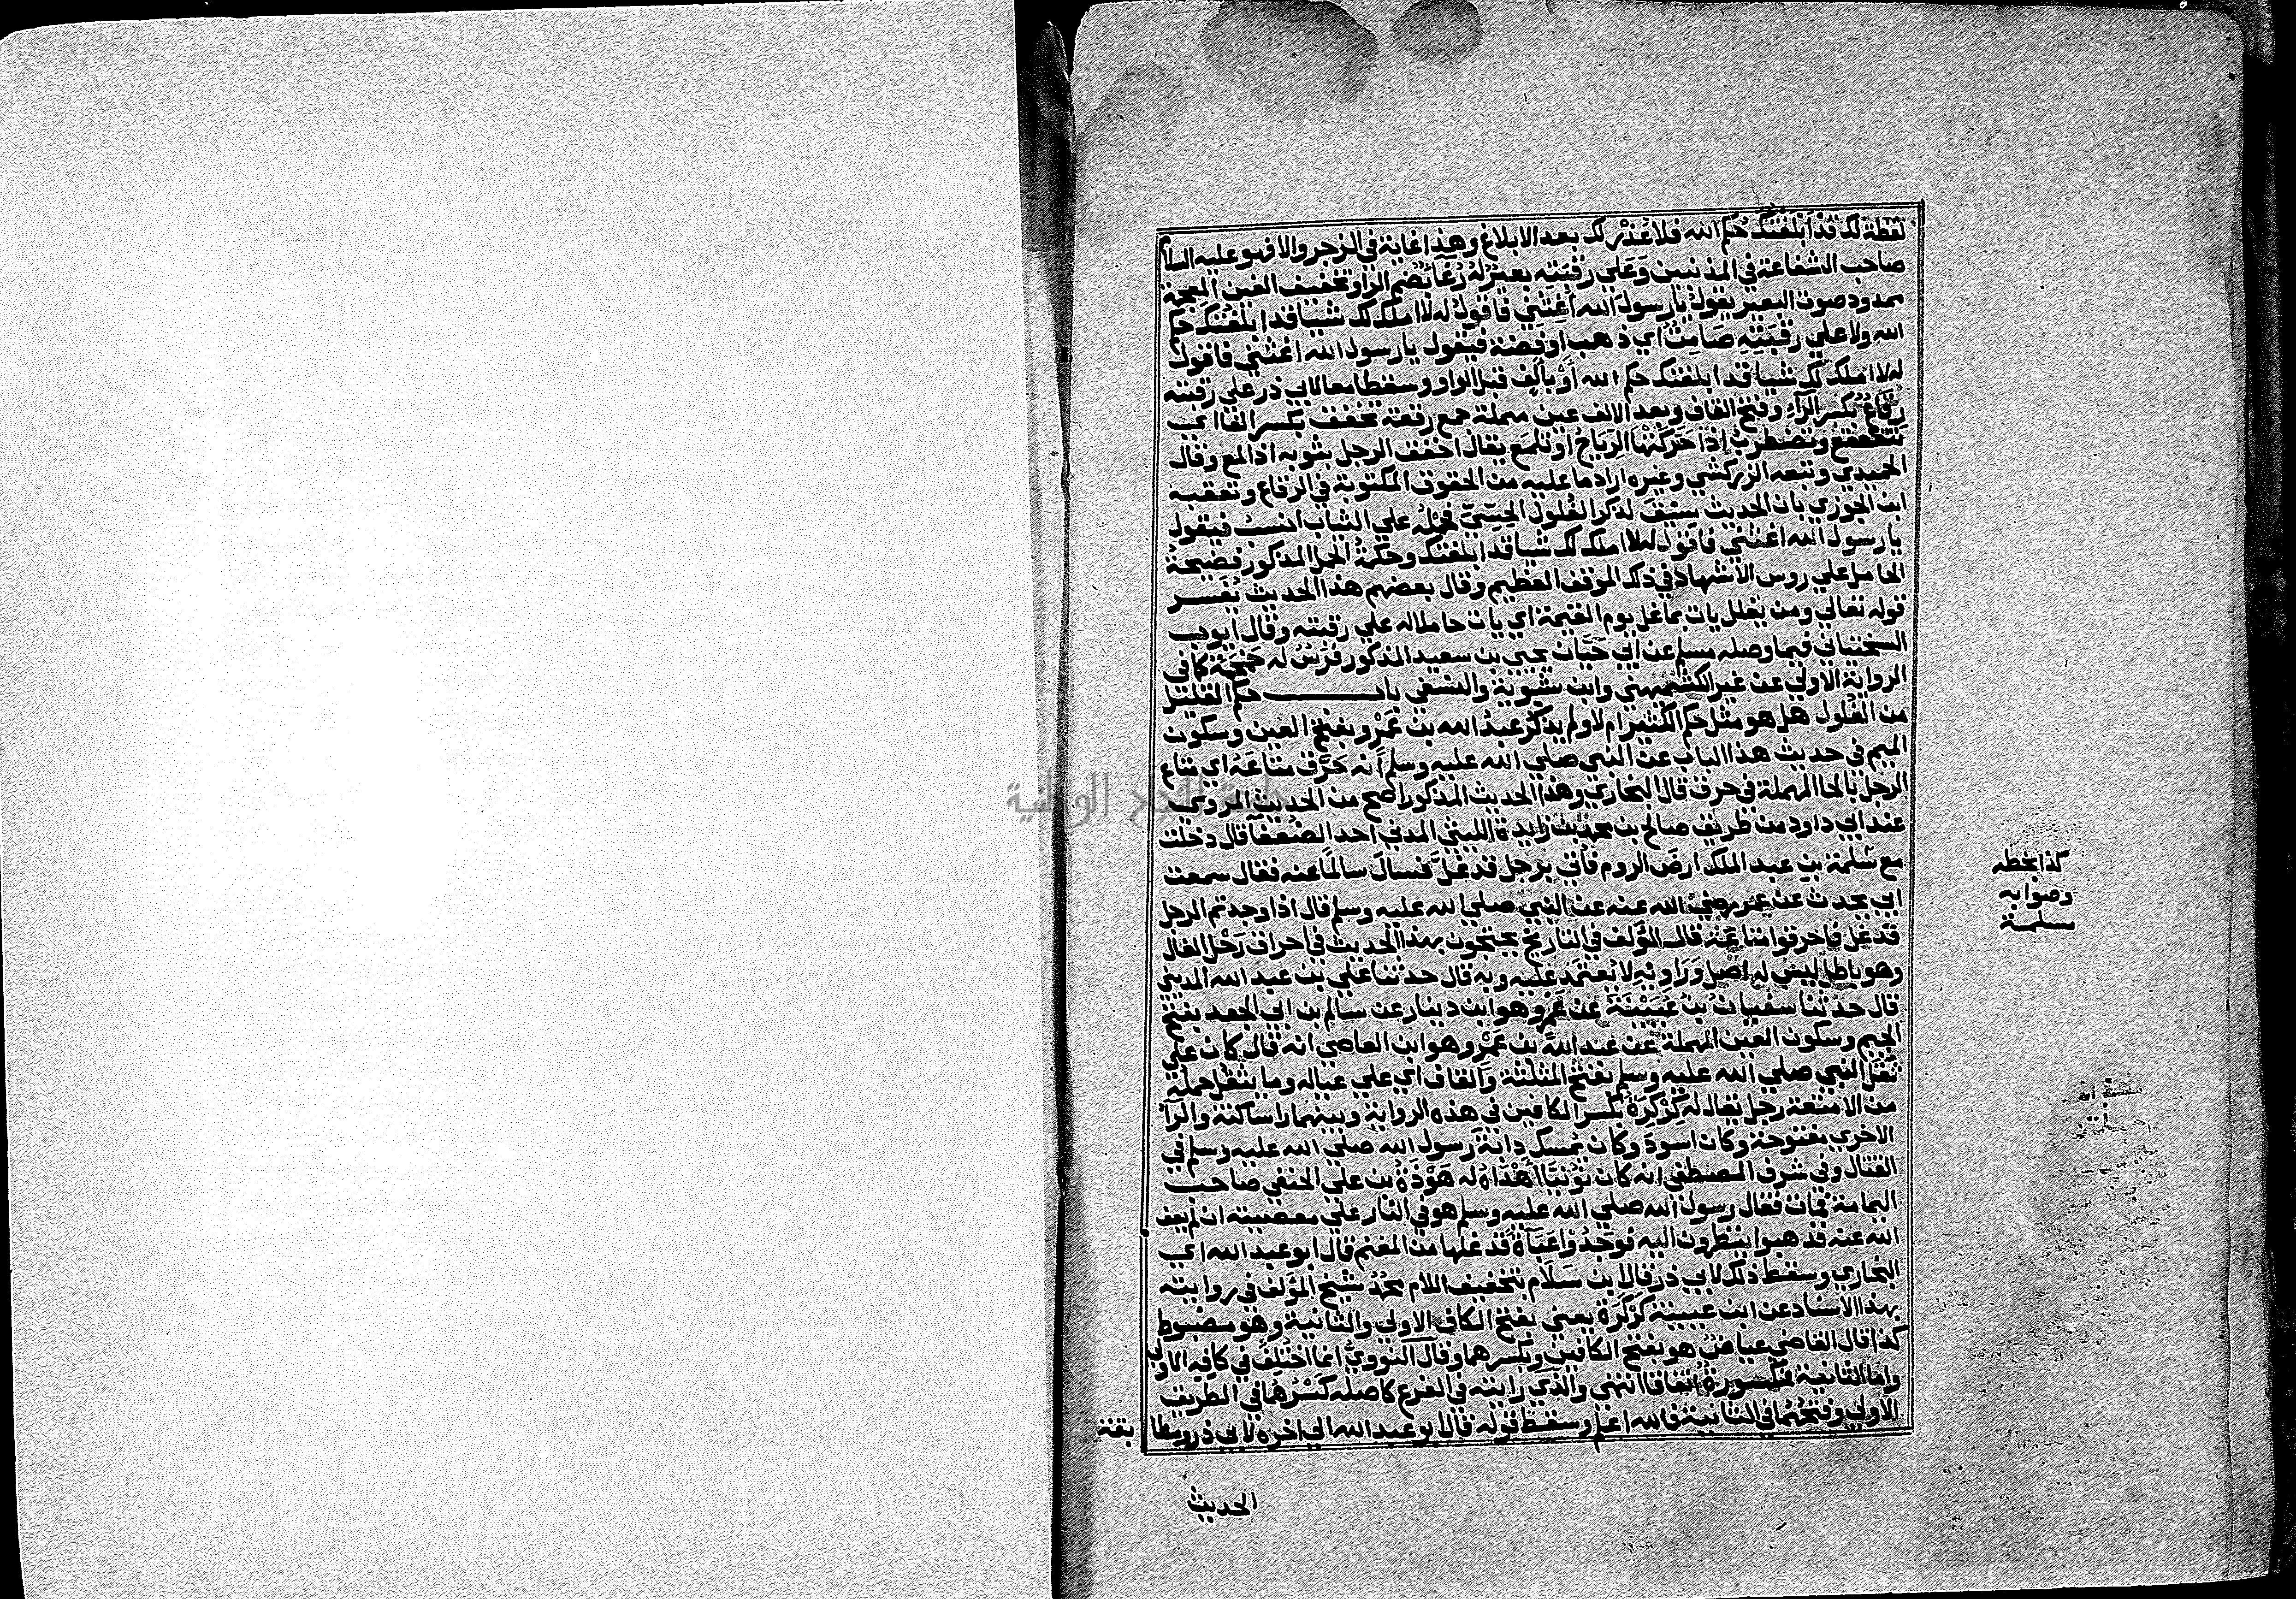 لفظة لك قد ابلغتك حكم الله فلا عذر لك بعد الابلاغ وهذا غاية في الزجر والا فهو عليه السلام
صاحب الشفاعة في المذنبين وعلي رقبته بعير له رغاء بضم الراء وتخفيف الغين المعجمة
ممدود صوت البعير يقول يا رسول الله اغثني فاقول له لا املك لك شيا قد ابلغتك حكم
الله ولا علي رقبته صامت اي ذهب او فضة فيقول يا رسول الله اغثني فاقول
له لا املك لك شيا قد ابلغتك حكم الله أو بالف قبل الواو وسقطا معا لابي ذر علي رقبته
رقاع بكسر الراء وفتح القاف وبعد الالف عين مهملة جمع رقعة تخفق بكسر الفا اي
تتقعقع وتضطرب اذا حركتها الرياح او تلمع يقال اخفق الرجل بثوبه اذا لمع وقال
الحميدي وتبعه الزركشي وغيره اراد ما عليه من الحقوق المكتوبة في الرقاع وتعقبه
ابن الجوزي بان الحديث سيق لذكر الغلول الحسي فحمله علي الثياب انسب فيقول
يا رسول الله اغثني فاقول له لا املك لك شيا قد ابلغتك وحكمة الحمل المذكور فضيحة
الحامل علي روس الاشهاد في ذلك الموقف العظيم وقال بعضهم هذا الحديث يفسر
قوله تعالي ومن يغلل يات بما غل يوم القيمة اي يات حاملا له علي رقبته وقال ايوب
السختياني فيما وصله مسلم عن ابي حيان يحيي بن سعيد المذكور فرس له حمحمة كما في
الرواية الاولي عن غير الكشميهني وابن شبوية والنسفي باب حكم القليل
من الغلول هل هو مثل حكم الكثير ام لا ولم يذكر عبد الله بن عمرو بفتح العين وسكون
الميم في حديث هذا الباب عن النبي صلي الله عليه وسلم أنه حرق متاعه اي متاع
الرجل بالحا المهملة في حرق قال البخاري وهذا الحديث المذكور اصح من الحديث المروي
عند ابي داود من طريق صالح بن محمد بن زايدة الليثي المدني احد الضعفا قال دخلت
مع سلمة بن عبد الملك ارض الروم فأتي برجل قد غل فسال سالما عنه فقال سمعت
ابي يحدث عن عمر رضي الله عنه عن النبي صلي الله عليه وسلم قال اذا وجدتم الرجل
قد غل فاحرقوا متاعه قال المؤلف في التاريخ يحتجون بهذا الحديث في احراق رحل الغال
وهو باطل ليس له اصل وراويه لا يعتمد عليه وبه قال حدثنا علي بن عبد الله المديني
قال حدثنا سفيان بن عيينة عن عمرو هو ابن دينار عن سالم بن ابي الجعد بفتح
الجيم وسكون العين المهملة عن عبد الله بن عمرو هو ابن العاصي انه قال كان علي
ثقل النبي صلي الله عليه وسلم بفتح المثلثة والقاف اي علي عياله وما يثقل حمله
من الامتعة رجل يقال له كركرة بكسر الكافين في هذه الرواية وبينهما را ساكنة والرا
الاخري مفتوحة وكان اسود وكان يمسك دابة رسول الله صلي الله عليه وسلم في
القتال وفي شرف المصطفي انه كان نوبيا أهداه له هوذة بن علي الحنفي صاحب
اليمامة فمات فقال رسول الله صلي الله عليه وسلم هو في النار علي معصيته ان لم يعف
الله عنه فذهبوا ينظرون اليه فوجدوا عباة قد غلها من المغنم قال ابو عبد الله اي
البخاري وسقط ذلك لابي ذر قال ابن سلام بتخفيف اللام محمد شيخ المؤلف في روايته
بهذا الاسناد عن ابن عيينة كركرة يعني بفتح الكاف الاولي والثانية وهو مضبوط
كذا قال القاضي عياض هو بفتح الكافين وبكسرهما وقال النووي انما اختلف في كافه الاولي
واما الثانية فمكسورة اتفاقا انتهي والذي رايته في الفرع كاصله كسرهما في الطريق
الاولي وفتحهما في الثانية فالله اعلم وسقط قوله قال ابو عبد الله الي اخره لابي ذر
الحديث
كذا بخطه
وصوابه
مسلمة
جامعة النجاح الوطنية